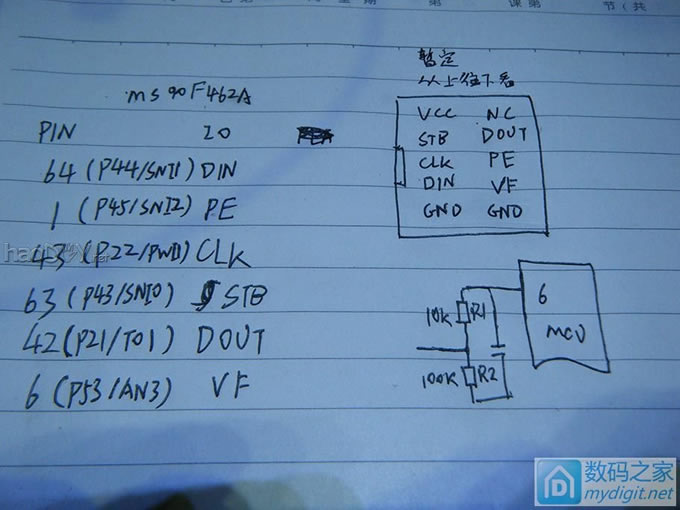 课第
节(共
ms90F462A
PIN IO
64 (P44/SNI1) DIN
1 (P45/SNI2) PE
43 (P22/PWI1) CLK
63 (P43/SNI0) STB
42 (P21/TO1) DOUT
6 (P53/AN3) VF
暂定
从上往下看
VCC NC
STB DOUT
CLK PE
DIN VF
GND GND
10K R1
100K R2
6
MCU
数码之家
mydigit.net